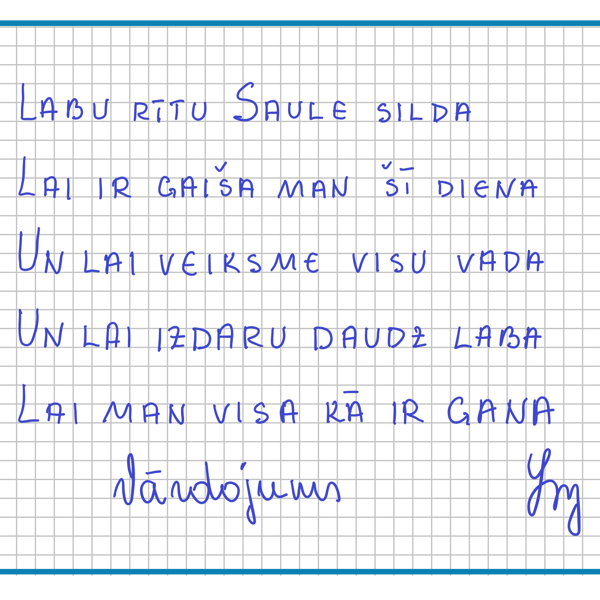 Labu rītu Saule silda
Lai ir gaiša man šī diena
Un lai veiksme visu vada
Un lai izdaru daudz laba
Lai man visa kā ir gana
Vārdojums